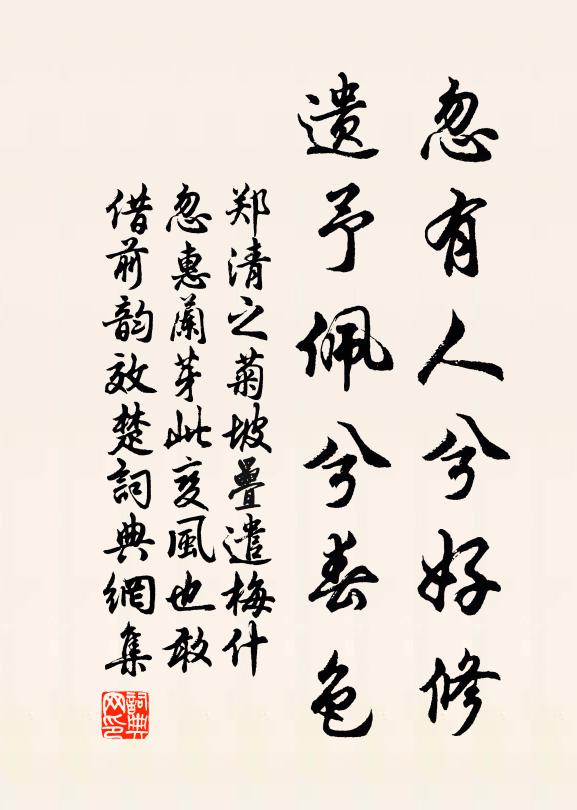 忽有人兮好修
遗予佩兮春色
郑清之菊坡疊遣梅什
忽惠蘭芽此变風也敢
借前韵效楚詞典網集
詞典网印